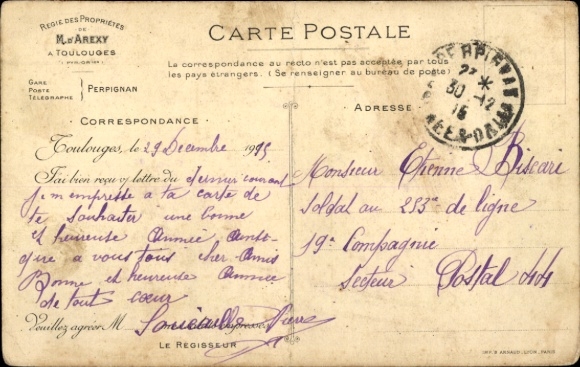 REGIE DES PROPRIÉTÉS
DE
M. D'AREXY
A TOULOUGES
(PYR.-OR<sup>les</sup>)
GARE
POSTE
TÉLÉGRAPHE
PERPIGNAN
CARTE POSTALE
La correspondance au recto n'est pas acceptée par tous
les pays étrangers. (Se renseigner au bureau de poste)
PERPIGNAN
30 -12
15
CORRESPONDANCE
Toulouges, le 29 Decembre 1915
J'ai bien reçu v/ lettre du dernier courant
je m'empresse a ta carte de
te souhaiter une bonne
et heureuse Année
que a vous tous cher Amis
Bonne et heureuse Année
de tout cœur
Veuillez agréer M
Pierre
LE REGISSEUR
ADRESSE
Monsieur Etienne Biscari
Soldat au 253e de ligne
19e Compagnie
Secteur Postal 44
PARIS